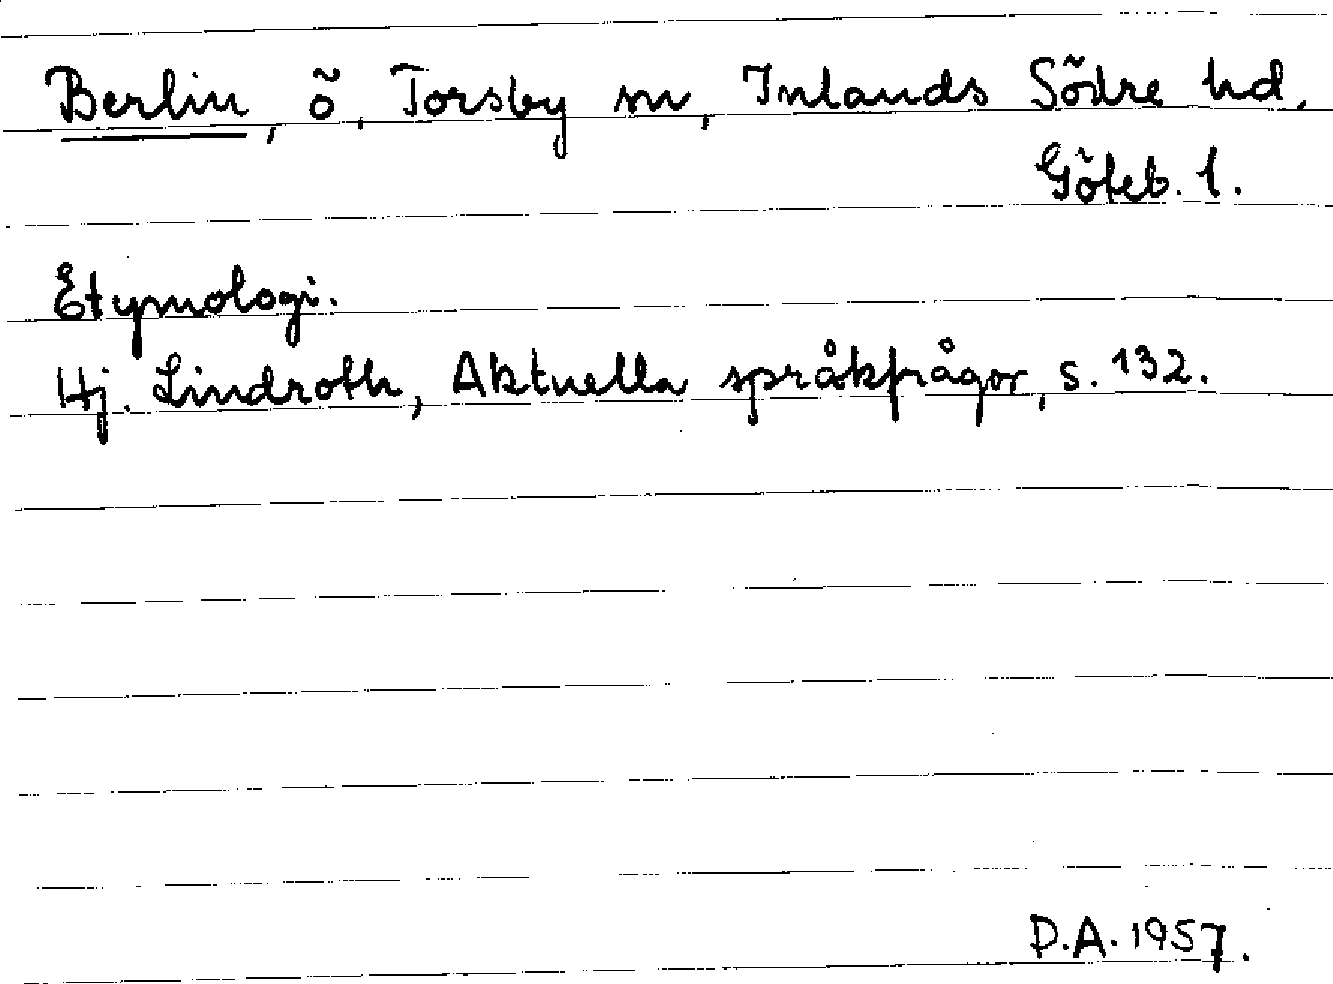 Berlin, ö, Torsby sn, Inlands Södre hd,
Göteb. l.
Etymologi.
Hj. Lindroth, Aktuella språkfrågor, s. 132.
D.A. 1957.